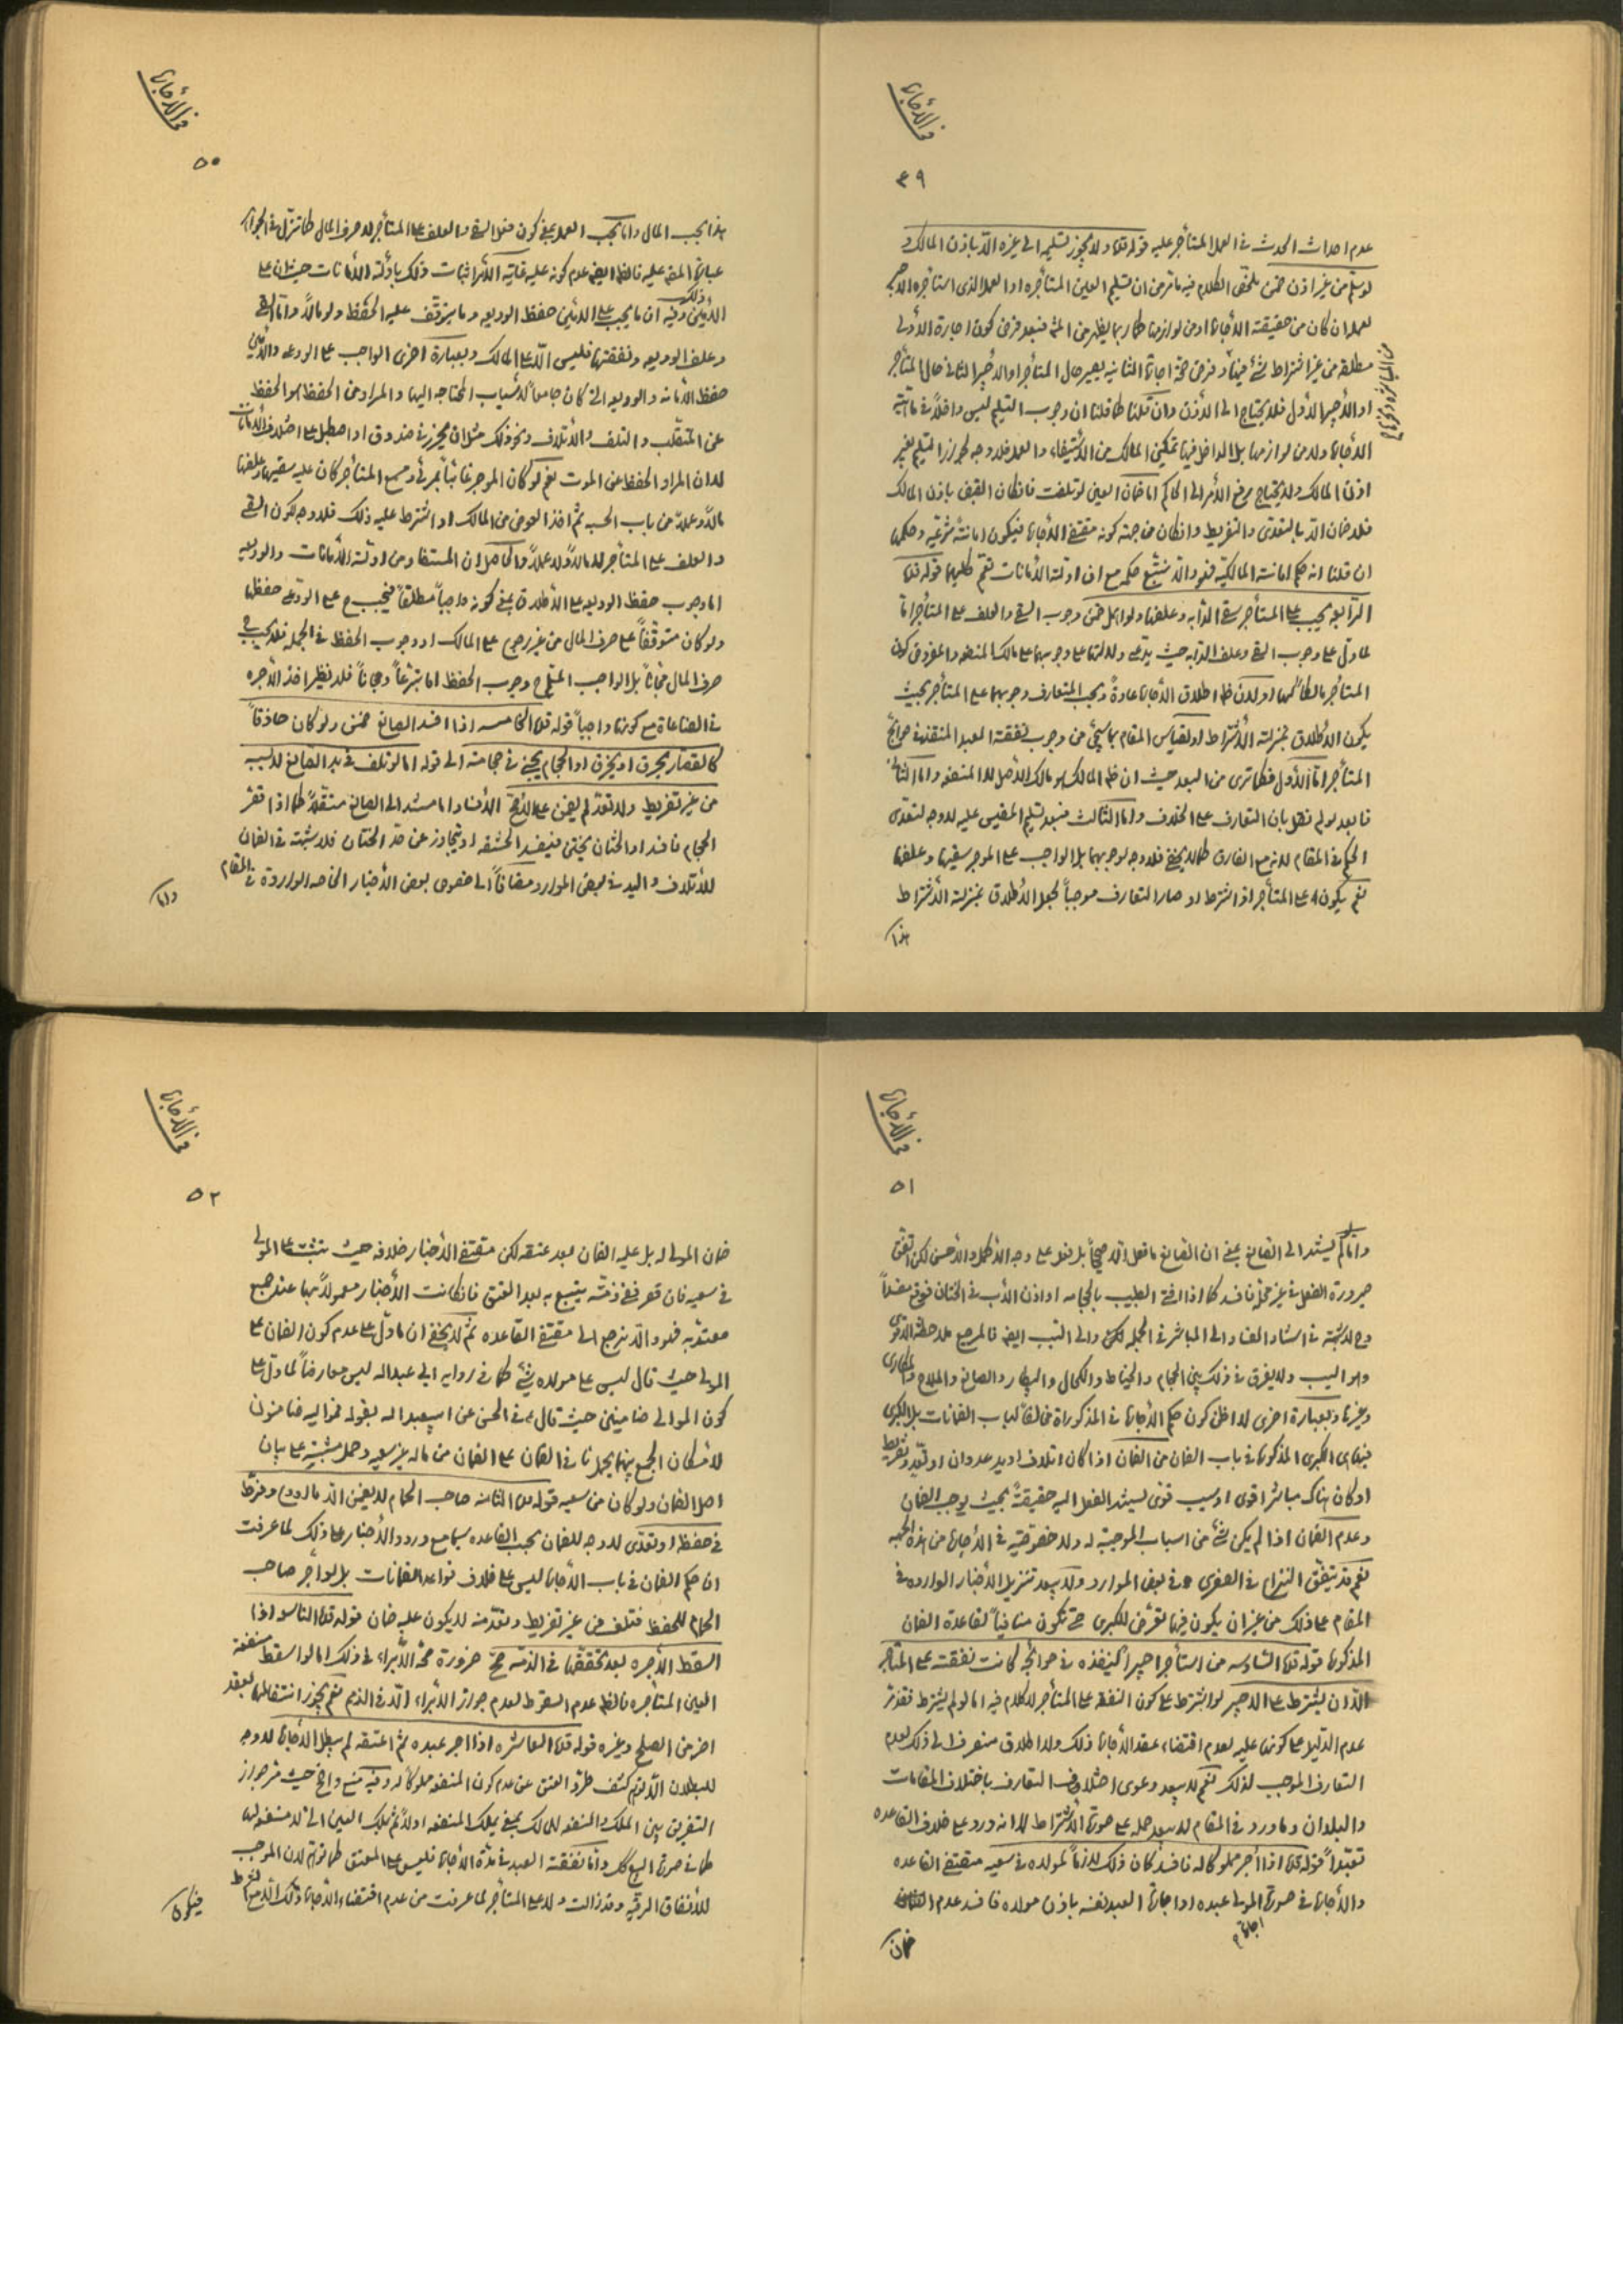 في الأجارة
٤٩
عدم احداث الحدث في العمل المستأجر عليه قوله قده ولا يجوز تسليمه الى غيره الا باذن المالك و
لو سلم من غير اذن ضمن ملخص الكلام فيه ما تر من ان تسليم العين المستأجره او العمل الذى استأجره الاجير
لعمل ان كان من حقيقته الأجارة او من لوازمها كما ربما يظهر من المتن فبعد فرض كون اجارة الأولى
مطلقه من غير اشتراط شئ فيها وفرض صحة اجارة الثانيه يصير حال المستأجر او الأجير الثانى حال المستأجر
او الأجير الأول فلا يحتاج الى الأذن وان قلنا كما قلنا ان وجوب التسليم ليس داخلاً في ماهيّة
الأجارة ولا من لوازمها بل الداخل فيها تمكين المالك من الأستيفاء والعمل فلا وجه لجواز التسليم بغير
اذن المالك ولا يحتاج برفع الأمر الى الحاكم اما ضمان العين لو تلفت فان كان القبض باذن المالك
فلا ضمان الا بالتعدى والتفريط وان كان من جهة كونه مقتضى الأجارة فيكون امانة شرعيّه وحكمها
ان قلنا انه حكم امانة المالكيّه فهو والا يتبع حكمه مع ان ادلة الأمانات تعم كليهما قوله قده
الرابعه يجب على المستأجر سقى الدابه وعلفها ولو اهمل ضمن وجوب السقى والعلف على المستأجر اما
لما دل على وجوب السقى وعلف الدابه حيث يدعى دلالتها على وجوبهما على مالك المنفعه والمفروض كون
المستأجر مالكاً لها او لأن ظ اطلاق الأجارة عادةً وبحسب المتعارف وجوبهما على المستأجر بحيث
يكون الأطلاق بمنزلة الأشتراط او لقياس المقام بما سيجئ من وجوب نفقة العبد المنفذ في حوائج
المستأجر اما الأول فكما ترى من البعد حيث ان ظ المالك هو مالك الأصل لا المنفعه واما الثانى
فابعد لو لم نقل بان التعارف على الخلاف واما الثالث فبعد تسليم المقيس عليه لا وجه لتعدى
الحكم في المقام لانه مع الفارق كما لا يخفى فلا وجه لوجوبهما بل الواجب على الموجر سقيها وعلفها
نعم يكون على المستأجر اذا اشترط او صار التعارف موجباً لجعل الأطلاق بمنزلة الأشتراط
هذا
في الأجارة
٥٠
هذا بحسب المال واما بحسب العمل بمعنى كون فعل السقى والعلف على المستأجر لا صرف المال كما تنزل في الجواهر
عبارة المص عليه فالظ ايضاً عدم كونه عليه غاية الأمر اثبات ذلك بادلة الأمانات حيث ان على
الأمين ذلك وفيه ان ما يجب على الأمين حفظ الوديعه وما يتوقف عليه الحفظ ولو مالاً واما السقى
وعلف الوديعه ونفقتها فليس الا على المالك وبعبارة اخرى الواجب على الودعى والأمين
حفظ الأمانه والوديعه التى كان جامعاً لأسباب المحتاجه اليها والمراد من الحفظ هو الحفظ
عن التقلب والتلف والأتلاف ونحو ذلك مثل ان يحرز في صندوق او اصطبل على اختلاف الأمانات
لا ان المراد الحفظ عن الموت نعم لو كان الموجر غائباً بمرئى ومسمع المستأجر كان عليه سقيها وعلفها
مالاً وعملاً من باب الحسبه ثم اخذ العوض من المالك او اشترط عليه ذلك فلا وجه لكون السقى
والعلف على المستأجر لا مالاً ولا عملاً والحاصل ان المستفاد من ادلة الأمانات والوديعه
اما وجوب حفظ الوديعه على الأطلاق بمعنى كونه واجباً مطلقاً فيجب ح على الودعى حفظها
ولو كان متوقفاً على صرف المال من غير رجوع على المالك او وجوب الحفظ في الجمله فلا يجب ح
صرف المال مجاناً بل الواجب المتيقن ح وجوب الحفظ اما تبرعاً ومجاناً فلا نظير اخذ الأجره
في الصناعات مع كونها واجباً قوله قده الخامسه اذا افسد الصانع ضمن ولو كان حاذقاً
كالقصار يحرق او يخرق او الحجام يجنى في حجامته الى قوله اما لو تلف في يد الصانع لا بسببه
من غير تفريط ولا تعد لم يضمن على الأصح الأفساد اما مستند الى الصانع مستقلاً كما اذا قصر
الحجام فافسد او الختان يختن فيقصد الحشفه او يتجاوز عن حد الختان فلا شبهة في الضمان
للأتلاف واليد في بعض الموارد مضافاً الى خصوص بعض الأخبار الخاصه الواردة في المقام
واما
في الأجارة
٥١
واما لم يستند الى الصانع بمعنى ان الصانع ما فعل الا صحيحاً بل فعل على وجه الأكمل والأحسن لكن اتفق
صيرورة الفعل في غير محله فافسد كما اذا افتى الطبيب بالحجامه او اذن الأب في الختان فوقع مفسداً
وح لا شبهة في استناد الفساد الى المباشر في الجمله لكن والى السبب ايضاً فالمرجع ملاحظة الأقوى
وهو السبب ولا يفرق في ذلك بين الحجام والخياط والكحال والبيطار والصانع والملاح والمكارى
وغيرها وبعبارة اخرى لا اظن كون حكم الأجارة في المذكورات مخالفاً لباب الضمانات بل الكبرى
فيها هى الكبرى المذكورة في باب الضمان من الضمان اذا كان اتلاف او يد عدوان او تعد وتفريط
او كان هناك مباشر اقوى او سبب قوى يستند الفعل اليه حقيقةً بحيث يوجب الضمان
وعدم الضمان اذا لم يكن شئ من اسباب الموجبة له ولا خصوصية في الأجارة من هذه الجهه
نعم قد يتفق النزاع في الصغرى في بعض الموارد ولا يبعد تنزيل الأخبار الوارده في
المقام على ذلك من غير ان يكون فيها تعرض للكبرى حتى تكون منافياً لقاعدة الضمان
المذكورة قوله قده السادسه من استأجر اجيراً لينفذه في حوائجه كانت نفقته على المستأجر
الا ان يشترط على الأجير لو اشترط على كون النفقه على المستأجر لا كلام فيه اما لو لم يشترط فقد تر
عدم الدليل على كونها عليه لعدم اقتضاء عقد الأجارة ذلك ولا اطلاق منصرف الى ذلك لعدم
التعارف الموجب لذلك نعم لا يبعد دعوى اختلاف التعارف باختلاف المقامات
والبلدان وما ورد في المقام لا يبعد حمله على صورة الأشتراط لا انه ورد على خلاف القاعده
تعبداً قوله قده اذا آجر مملوكاً له فافسد كان ذلك لازماً لمولاه في سعيه مقتضى القاعده
والأجارة في صورة اجارة المولى عبده او اجارة العبد نفسه باذن مولاه فافسد عدم
ضمان
في الأجارة
٥٢
ضمان المولى له بل عليه الضمان بعد عتقه لكن مقتضى الأخبار خلافه حيث يثبت على المولى
في سعيه فان قصر ففى ذمته يتبع به بعد العتق فان كانت الأخبار معمولاً بها عند جمع
معتد به فهو والا نرجع الى مقتضى القاعده ثم لا يخفى ان ما دل على عدم كون الضمان على
المولى حيث قال ليس على مولاه شئ كما في روايه ابى عبدالله ليس معارضاً لما دل على
كون الموالى ضامنين حيث قال في الحسن عن ابيعبدالله بقوله فمواليه ضامنون
لأمكان الجمع بينهما بحمل نا في الضمان على الضمان من ماله بغير سعيه وحمل مثبته على بيان
اصل الضمان ولو كان من سعيه قوله قده الثامنه صاحب الحمام لا يضمن الا ما اودع وفرط
في حفظه او تعدى لا وجه للضمان بحسب القاعده سيما مع ورود الأخبار على ذلك لما عرفت
ان حكم الضمان في باب الأجارة ليس على خلاف قواعد الضمانات بل لو آجر صاحب
الحمام للحفظ فتلف من غير تفريط وتعد منه لا يكون عليه ضمان قوله قده التاسعه اذا
اسقط الأجره بعد تحققها في الذمه صح ضرورة صحة الأبراء في ذلك اما لو اسقط منفعة
العين المستأجره فالظ عدم السقوط لعدم جواز الأبراء الا في الذمم نعم يجوز انتقالها بعقد
اخر من الصلح وغيره قوله قده العاشره اذا اجر عبده ثم اعتقه لم يبطل الأجارة لا وجه
للبطلان الا لتوهم كشف طرو العتق عن عدم كون المنفعه مملوكاً له وفيه منع واضح حيث تر جواز
التفريق بين الملك والمنفعه للمالك بمعنى يملك المنفعه اولاً ثم يملك العين التى لا منفعة لها
كما في صورة البيع كك واما نفقة العبد في مدة الأجارة فليس على المعتق كما توهم لان الموجب
للأنفاق الرقية وقد زالت ولا على المستأجر لما عرفت من عدم اقتضاء الأجارة ذلك الا مع الشرط
فيكون